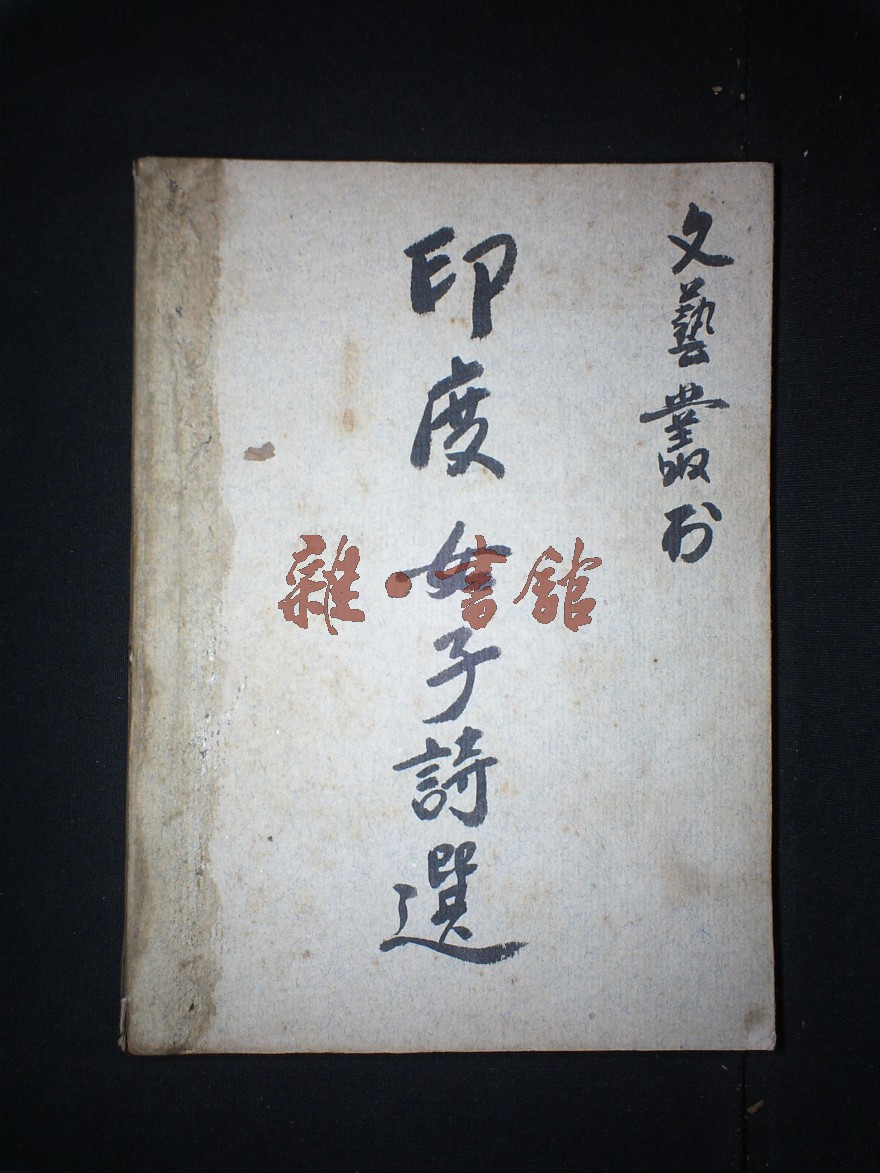 文藝叢刊
印度女子詩選
雜·書館